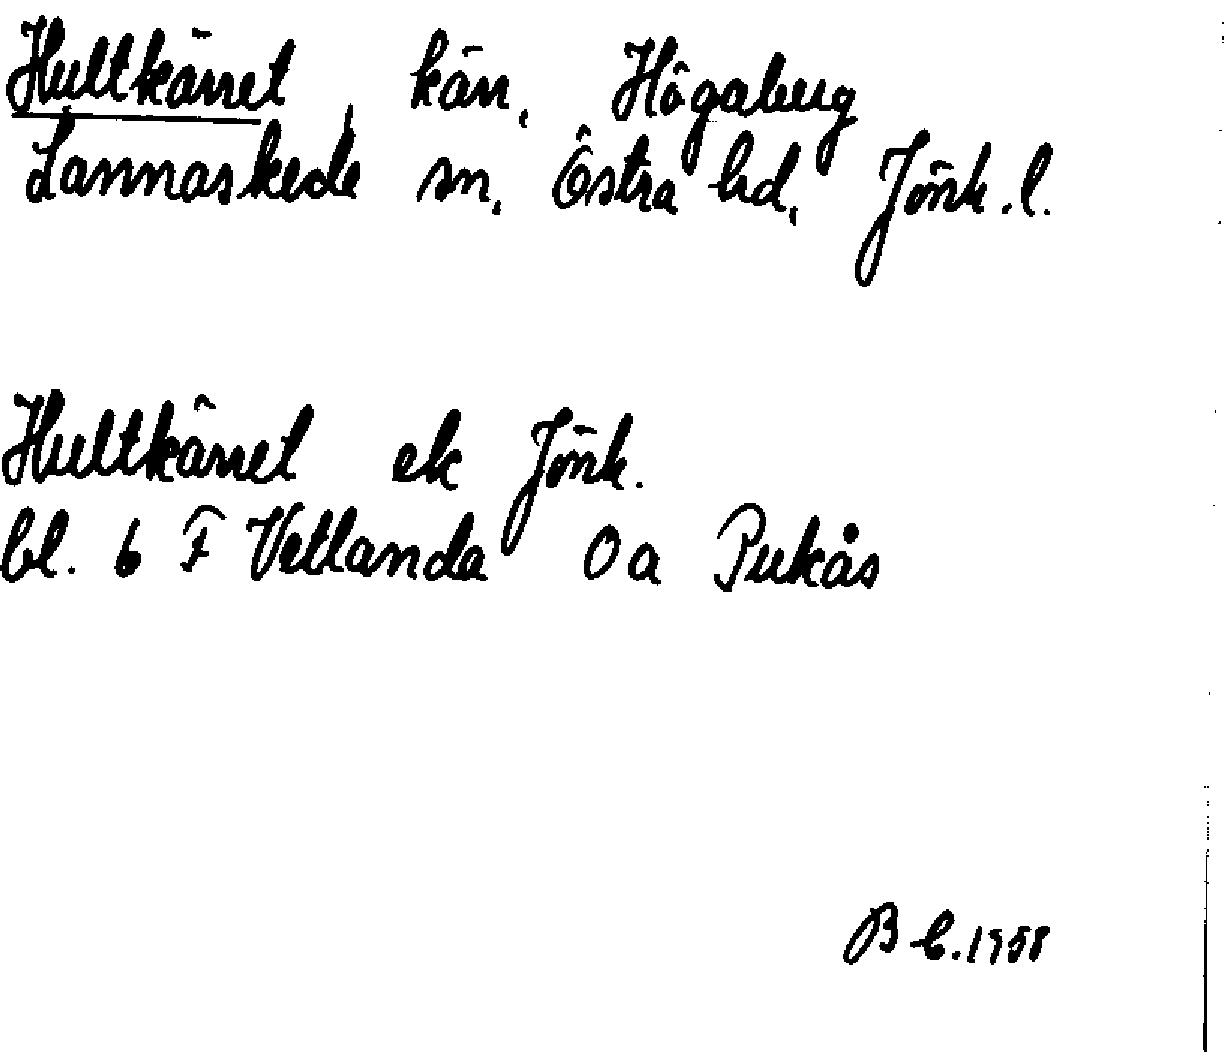 Hultkärret, kärr, Högaberg
Lannaskede sn, Östra hd, Jönk. l.
Hultkärret ek Jönk.
bl. 6 F Vetlanda 0a Pukås
B-b. 1958